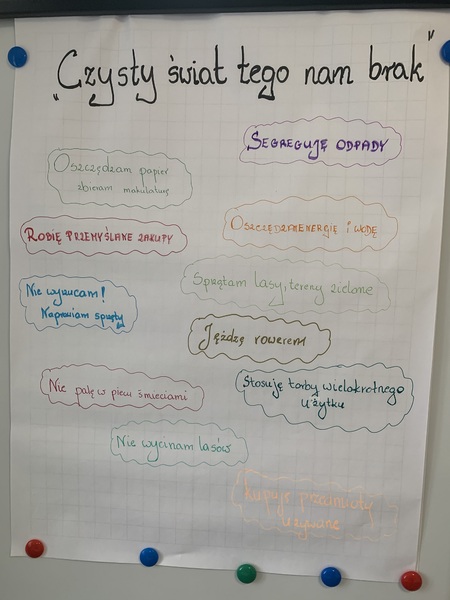 „Czysty świat tego nam brak"
SEGREGUJĘ ODPADY
Oszczędzam papier
zbieram makulaturę
OSZCZĘDZAM ENERGIĘ i WODĘ
ROBIĘ PRZEMYŚLANE ZAKUPY
Sprzątam lasy, tereny zielone
Nie wyrzucam!
Naprawiam sprzęty
Jeżdżę rowerem
Stosuję torby wielokrotnego
użytku
Nie palę w piecu śmieciami
Nie wycinam lasów
Kupuję przedmioty
używane